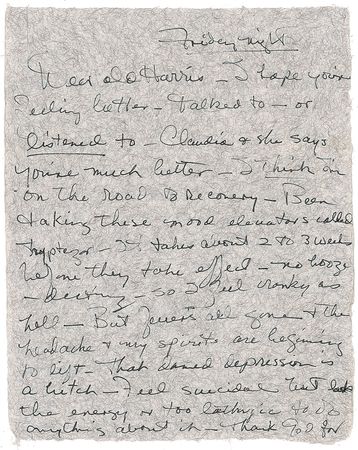 Friday night
Dear old Harris – I hope you're
feeling better – Talked to – or
listened to – Claudia & she says
you're much better – I think I'm
on the road to recovery – Been
taking these mood elevators called
– It takes about 2 to 3 weeks
before they take effect – no booze
– – so I feel cranky as
hell – But fever's all gone & the
headache & my spirits are beginning
to lift – That damed depression is
a bitch – Feel suicidal but lack
the energy or too lathargic to do
anything about it – Thank God for